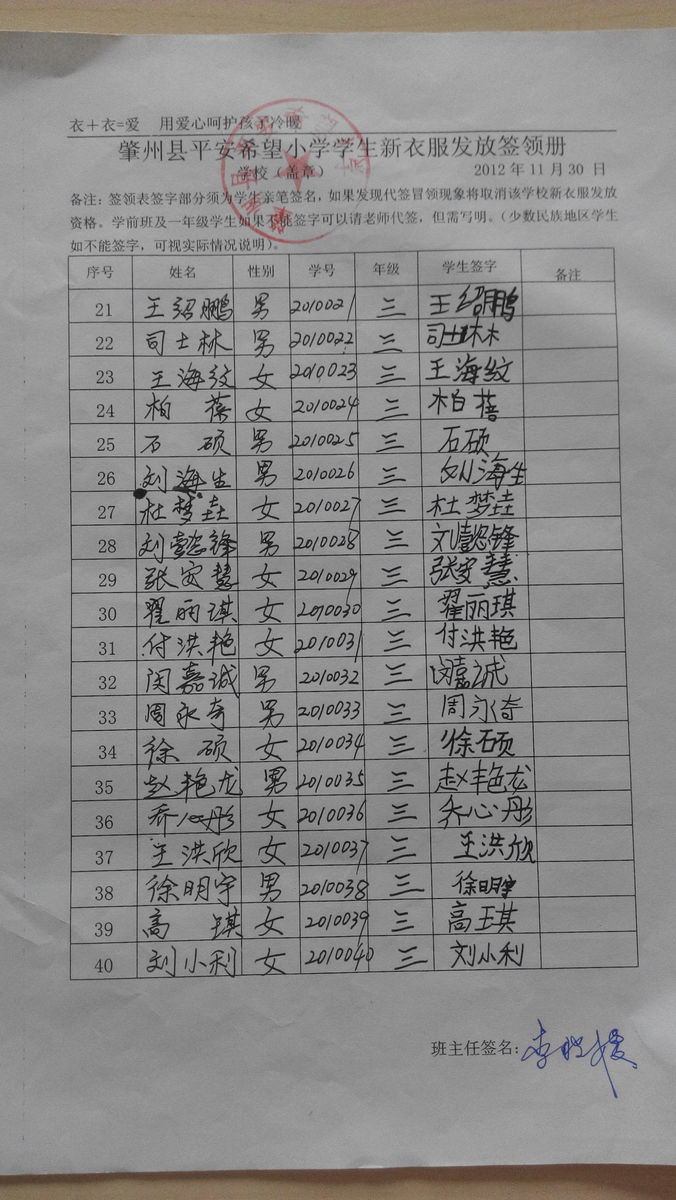 衣＋衣=爱 用爱心呵护孩子冷暖
肇州县平安希望小学学生新衣服发放签领册
学校（盖章） 2012 年 11 月 30 日
备注：签领表签字部分须为学生亲笔签名，如果发现代签冒领现象将取消该学校新衣服发放
资格。学前班及一年级学生如果不能签字可以请老师代签，但需写明。（少数民族地区学生
如不能签字，可视实际情况说明）。
序号 姓名 性别 学号 年级 学生签字 备注
21 王绍鹏 男 2010021 三 王绍鹏
22 司士林 男 2010022 三 司士林
23 王海纹 女 2010023 三 王海纹
24 柏蓓 女 2010024 三 柏蓓
25 石硕 男 2010025 三 石硕
26 刘海生 男 2010026 三 刘海生
27 杜梦垚 女 2010027 三 杜梦垚
28 刘懿锋 男 2010028 三 刘懿锋
29 张安慧 女 2010029 三 张安慧
30 翟丽琪 女 2010030 三 翟丽琪
31 付洪艳 女 2010031 三 付洪艳
32 闵嘉诚 男 2010032 三 闵嘉诚
33 周永奇 男 2010033 三 周永奇
34 徐硕 女 2010034 三 徐硕
35 赵艳龙 男 2010035 三 赵艳龙
36 乔心彤 女 2010036 三 乔心彤
37 王洪欣 女 2010037 三 王洪欣
38 徐明宇 男 2010038 三 徐明宇
39 高琪 女 2010039 三 高琪
40 刘小利 女 2010040 三 刘小利
班主任签名：